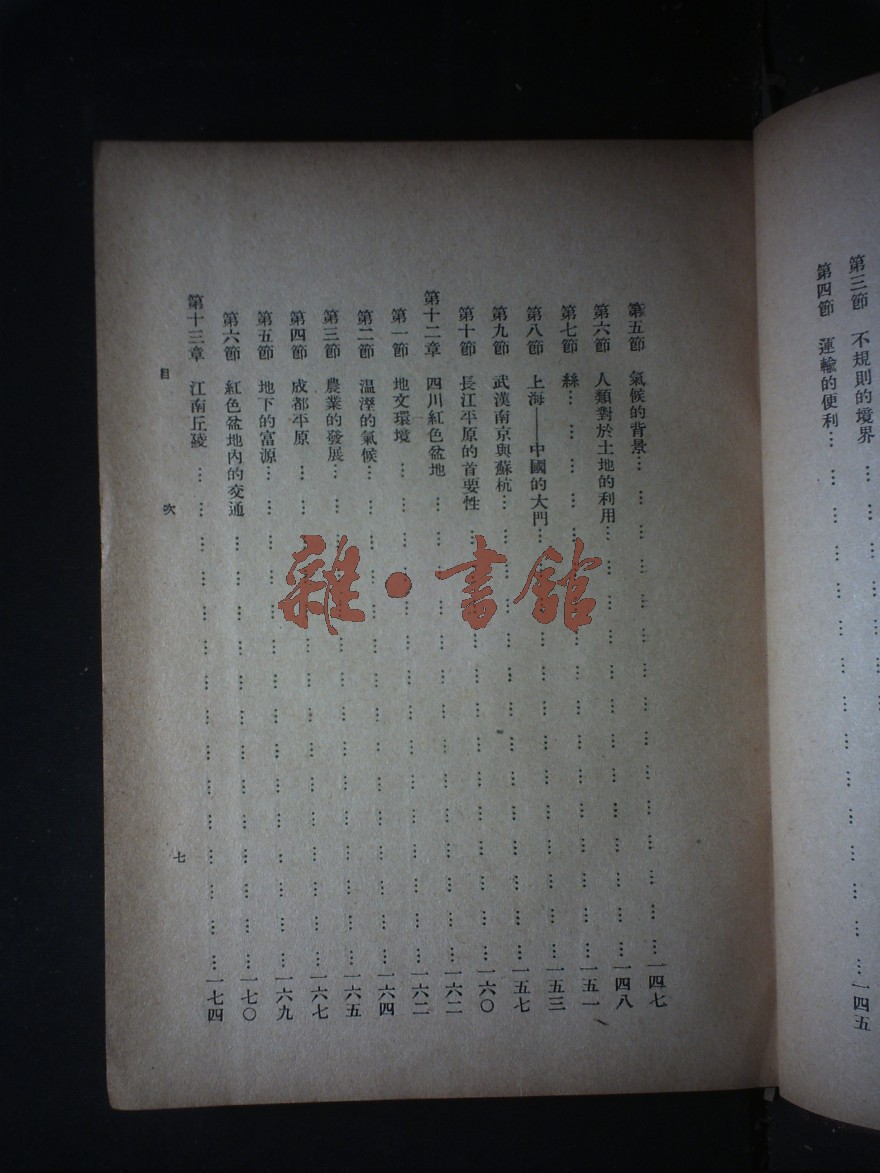 第三節 不規則的境界
第四節 運輸的便利 一四五
第五節 氣候的背景 一四七
第六節 人類對於土地的利用 一四八
第七節 絲 一五一
第八節 上海——中國的大門 一五三
第九節 武漢南京與蘇杭 一五七
第十節 長江平原的首要性 一六〇
第十二章 四川紅色盆地 一六二
第一節 地文環境 一六二
第二節 温溼的氣候 一六四
第三節 農業的發展 一六五
第四節 成都平原 一六七
第五節 地下的富源 一六九
第六節 紅色盆地內的交通 一七〇
第十三章 江南丘陵 一七四
目 次 七
雜·書館